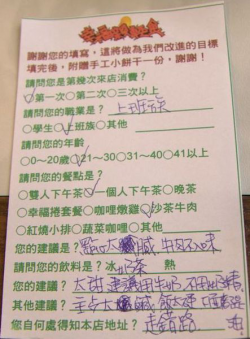 謝謝您的填寫，這將做為我們改進的目標
填完後，附贈手工小餅干一份，謝謝！
請問您是第幾次來店消費？
○第一次○二次○三次以上
請問您的職業是？上班族
○學生○上班族○其他
請問您的年齡
○0～20歲○21～30○31～40○41以上
請問您的餐點是？
○雙人下午茶○一個人下午茶○晚茶
○幸福捲套餐○咖哩燉雞○沙茶牛肉
○紅燒小排○蔬菜咖哩○其他
您的建議是？點心太鹹，牛肉不入味
請問您的飲料是？冰奶茶 熱
您的建議？太甜 建議用牛奶，不用奶精
其他建議？主占太鹹，飯太硬
您自何處得知本店地址？走錯路